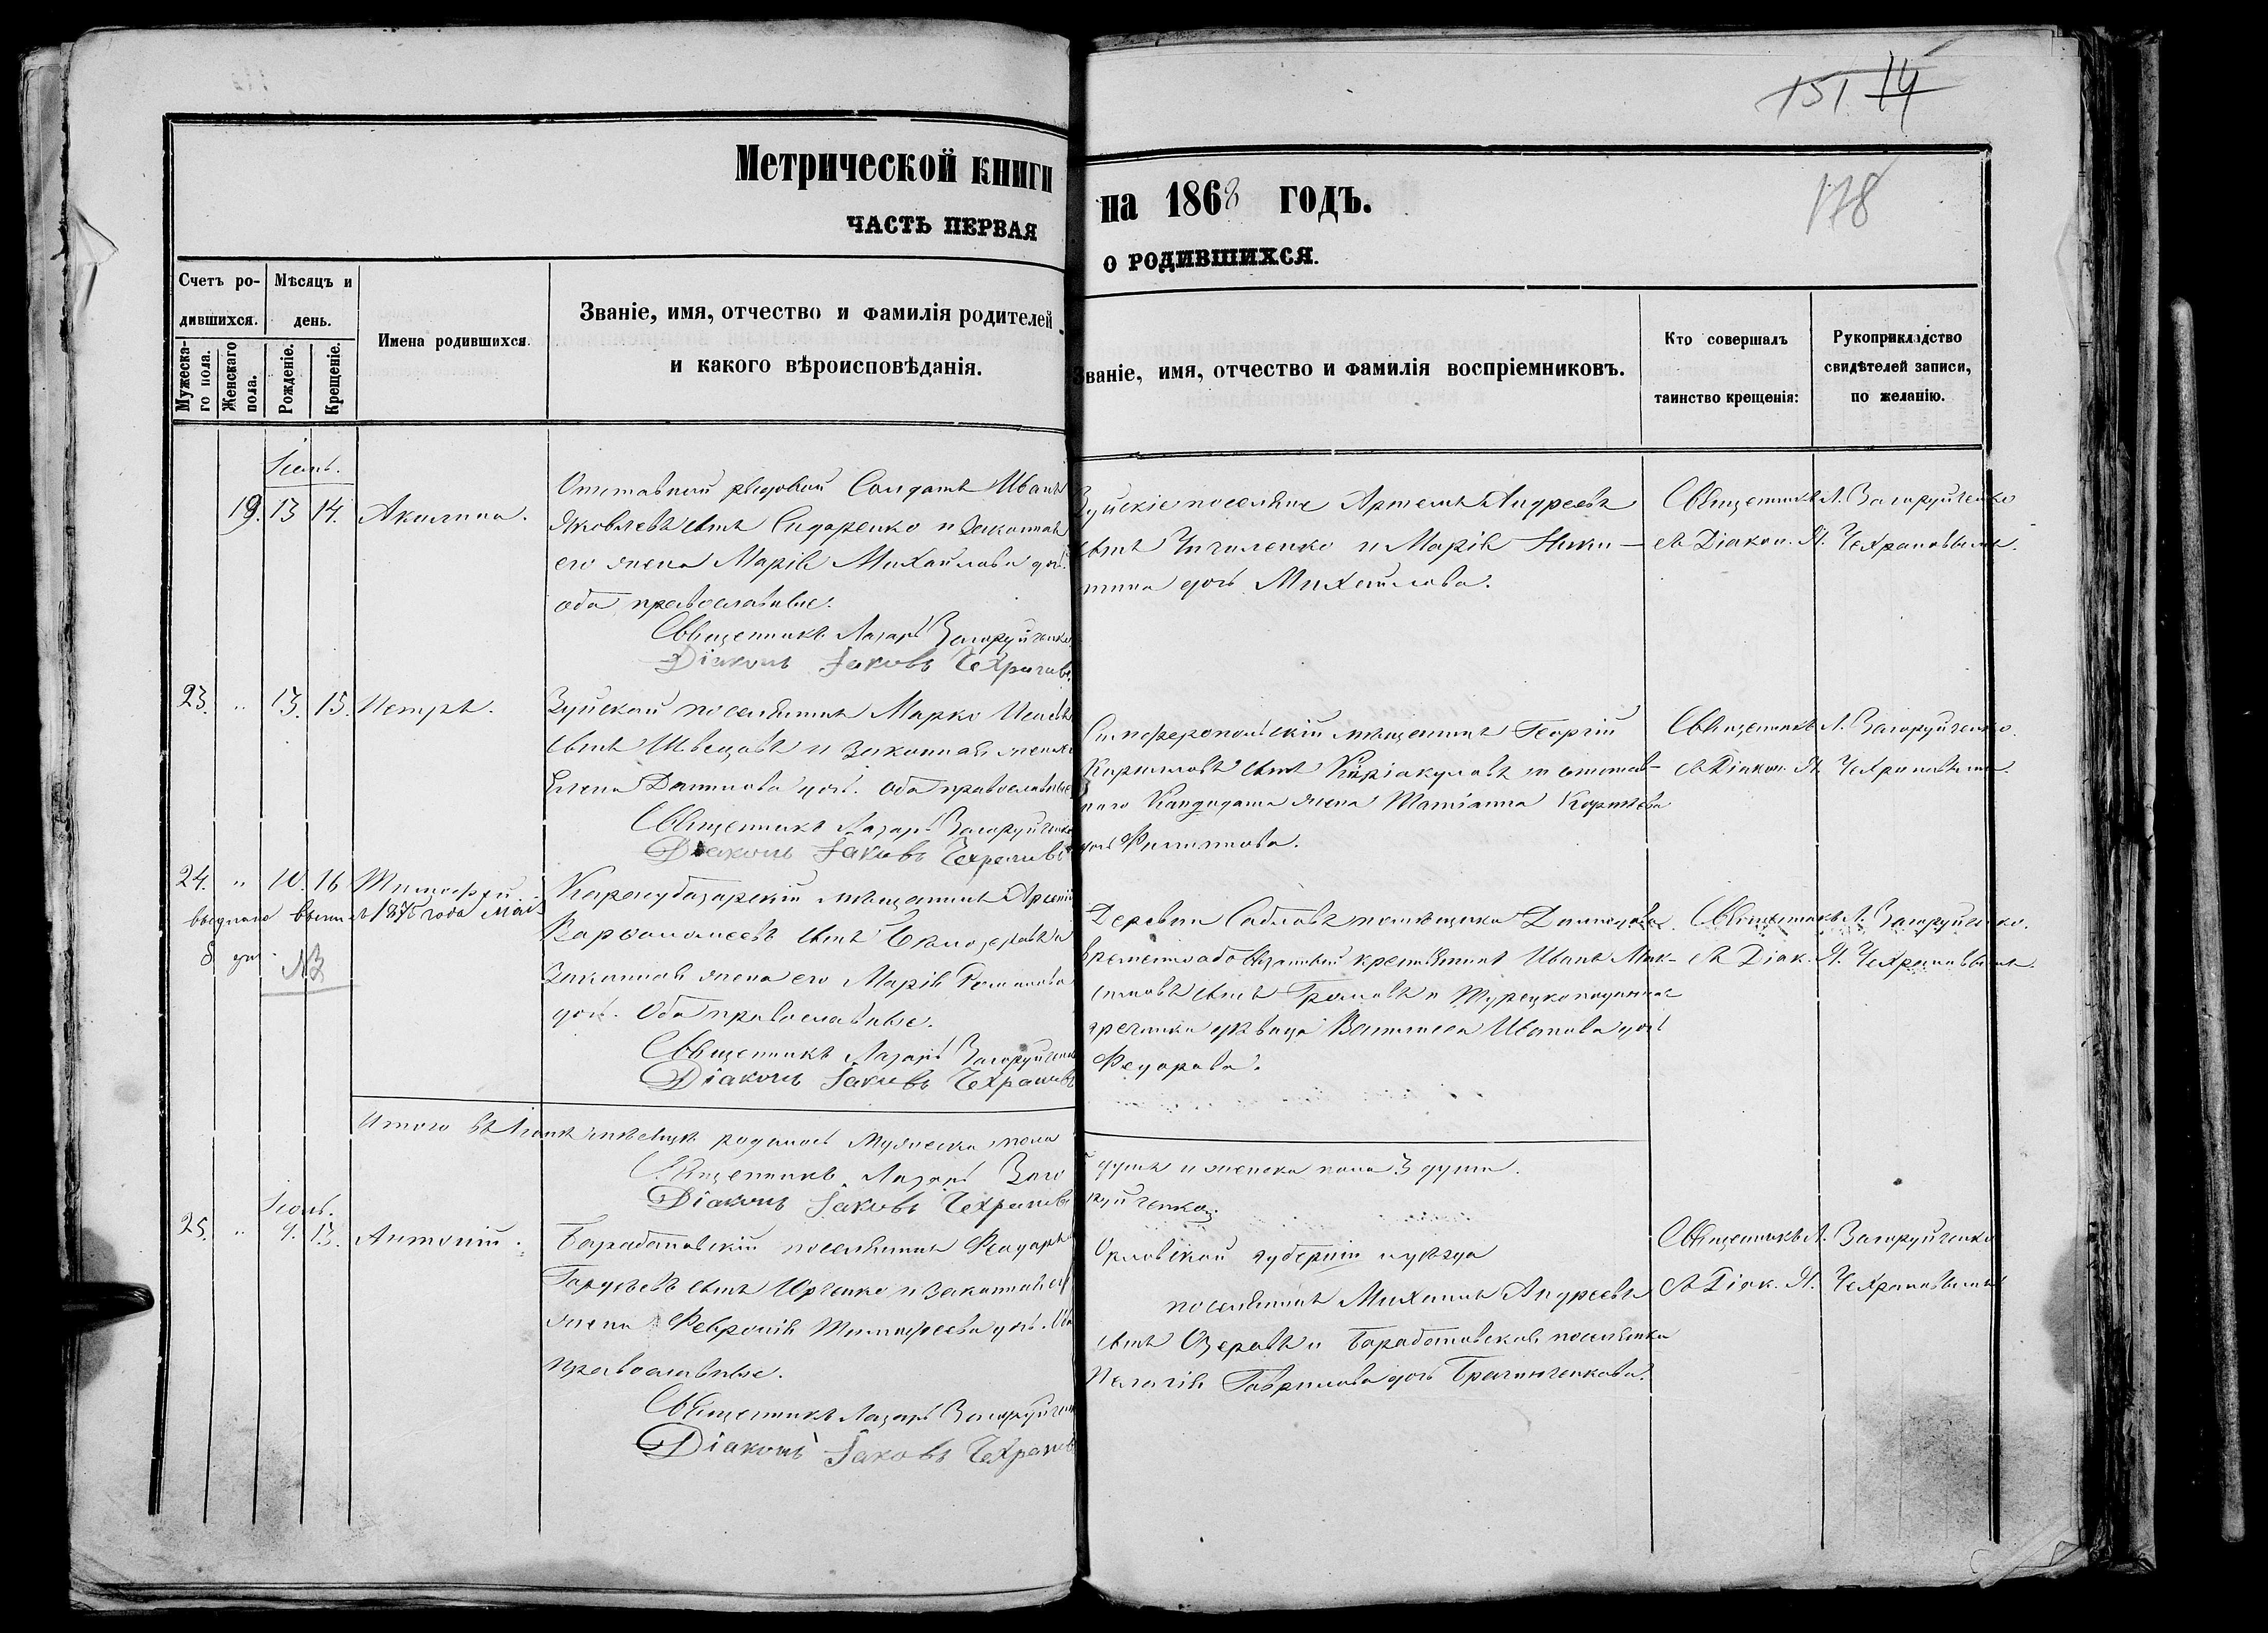 151 14
178
Метрической книги на 1868 годъ.
часть первая о родившихся.
Счетъ родившихся.
Мѣсяцъ и день.
Мужескаго пола.
Женскаго пола.
Рожденіе.
Крещеніе.
Имена родившихся.
Званіе, имя, отчество и фамилія родителей
и какого вѣроисповѣданія.
Званіе, имя, отчество и фамилія воспріемниковъ.
Кто совершалъ
таинство крещенія:
Рукоприкладство
свидѣтелей записи,
по желанію.
Іюнь.
19. 13 14. Акилина.
Отставной рядовой Солдатъ Иванъ
Яковлевъ сынъ Сидоренко и законная
его жена Марія Михайлова дочь.
оба православные.
Священникъ Лазарь Загоруйченко
Діаконъ Іаковъ Чехрановъ
Зуйскіе поселяне Артемъ Андреевъ
сынъ Чичиленко и Марія Ники-
тина дочь Михайлова.
Священникъ Л. Загоруйченко
съ Діакон. Я. Чехрановымъ.
23. " 13. 15. Петръ.
Зуйской поселянинъ Марко Исаевъ
сынъ Швецовъ и законная жена
Елена Данилова дочь. оба православные
Священникъ Лазарь Загоруйченко
Діаконъ Іаковъ Чехрановъ
Симферопольскій мѣщанинъ Георгій
Кирилловъ сынъ Киріакуловъ и отстав-
наго Кандидата жена Татіанна Корнѣева
дочь Филиппова.
Священникъ Л. Загоруйченко.
съ Діакон. Я. Чехрановымъ.
24. " 10. 16 Тимофей.
1875 года Мая
8 дня.
NB
Карасубазарскій мѣщанинъ Арсеній
Варфоломеевъ сынъ и
Законная жена его Марія Романова
дочь. Оба православные.
Священникъ Лазарь Загоруйченко
Діаконъ Іаковъ Чехрановъ
Деревни Сабловъ помѣщика
временнообязанный крестьянинъ Иванъ Мак-
симовъ сынъ Громовъ и Турецкоподданная
гречанка дѣвица Василиса Иванова дочь
Федорова.
Священникъ Л. Загоруйченко.
съ Діак. Я. Чехрановымъ.
Итого въ Іюнѣ мѣсяцѣ родилось Мужеска пола
душъ и женска пола 3 души.
Священникъ Лазарь Заго
руйченко
Діаконъ Іаковъ Чехрановъ
Іюль.
25. " 9. 13. Антоній.
Барабановскій поселянинъ Феодоръ
Гордѣевъ сынъ Юрченко и законная его
жена Февронія Тимофеева дочь. Оба
Православные.
Священникъ Лазарь Загоруйченко
Діаконъ Іаковъ Чехрановъ
Орловской губерніи и уѣзда
поселянинъ Михаилъ Андреевъ
сынъ Озеровъ и Барабановская поселянка
Пелагія Гаврилова дочь
Священникъ Л. Загоруйченко
съ Діак. Я. Чехрановымъ